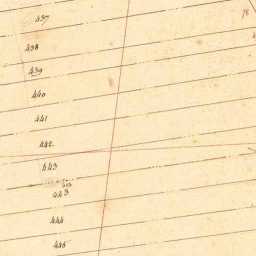 437
438
439
440
441
442
443
443
444
445